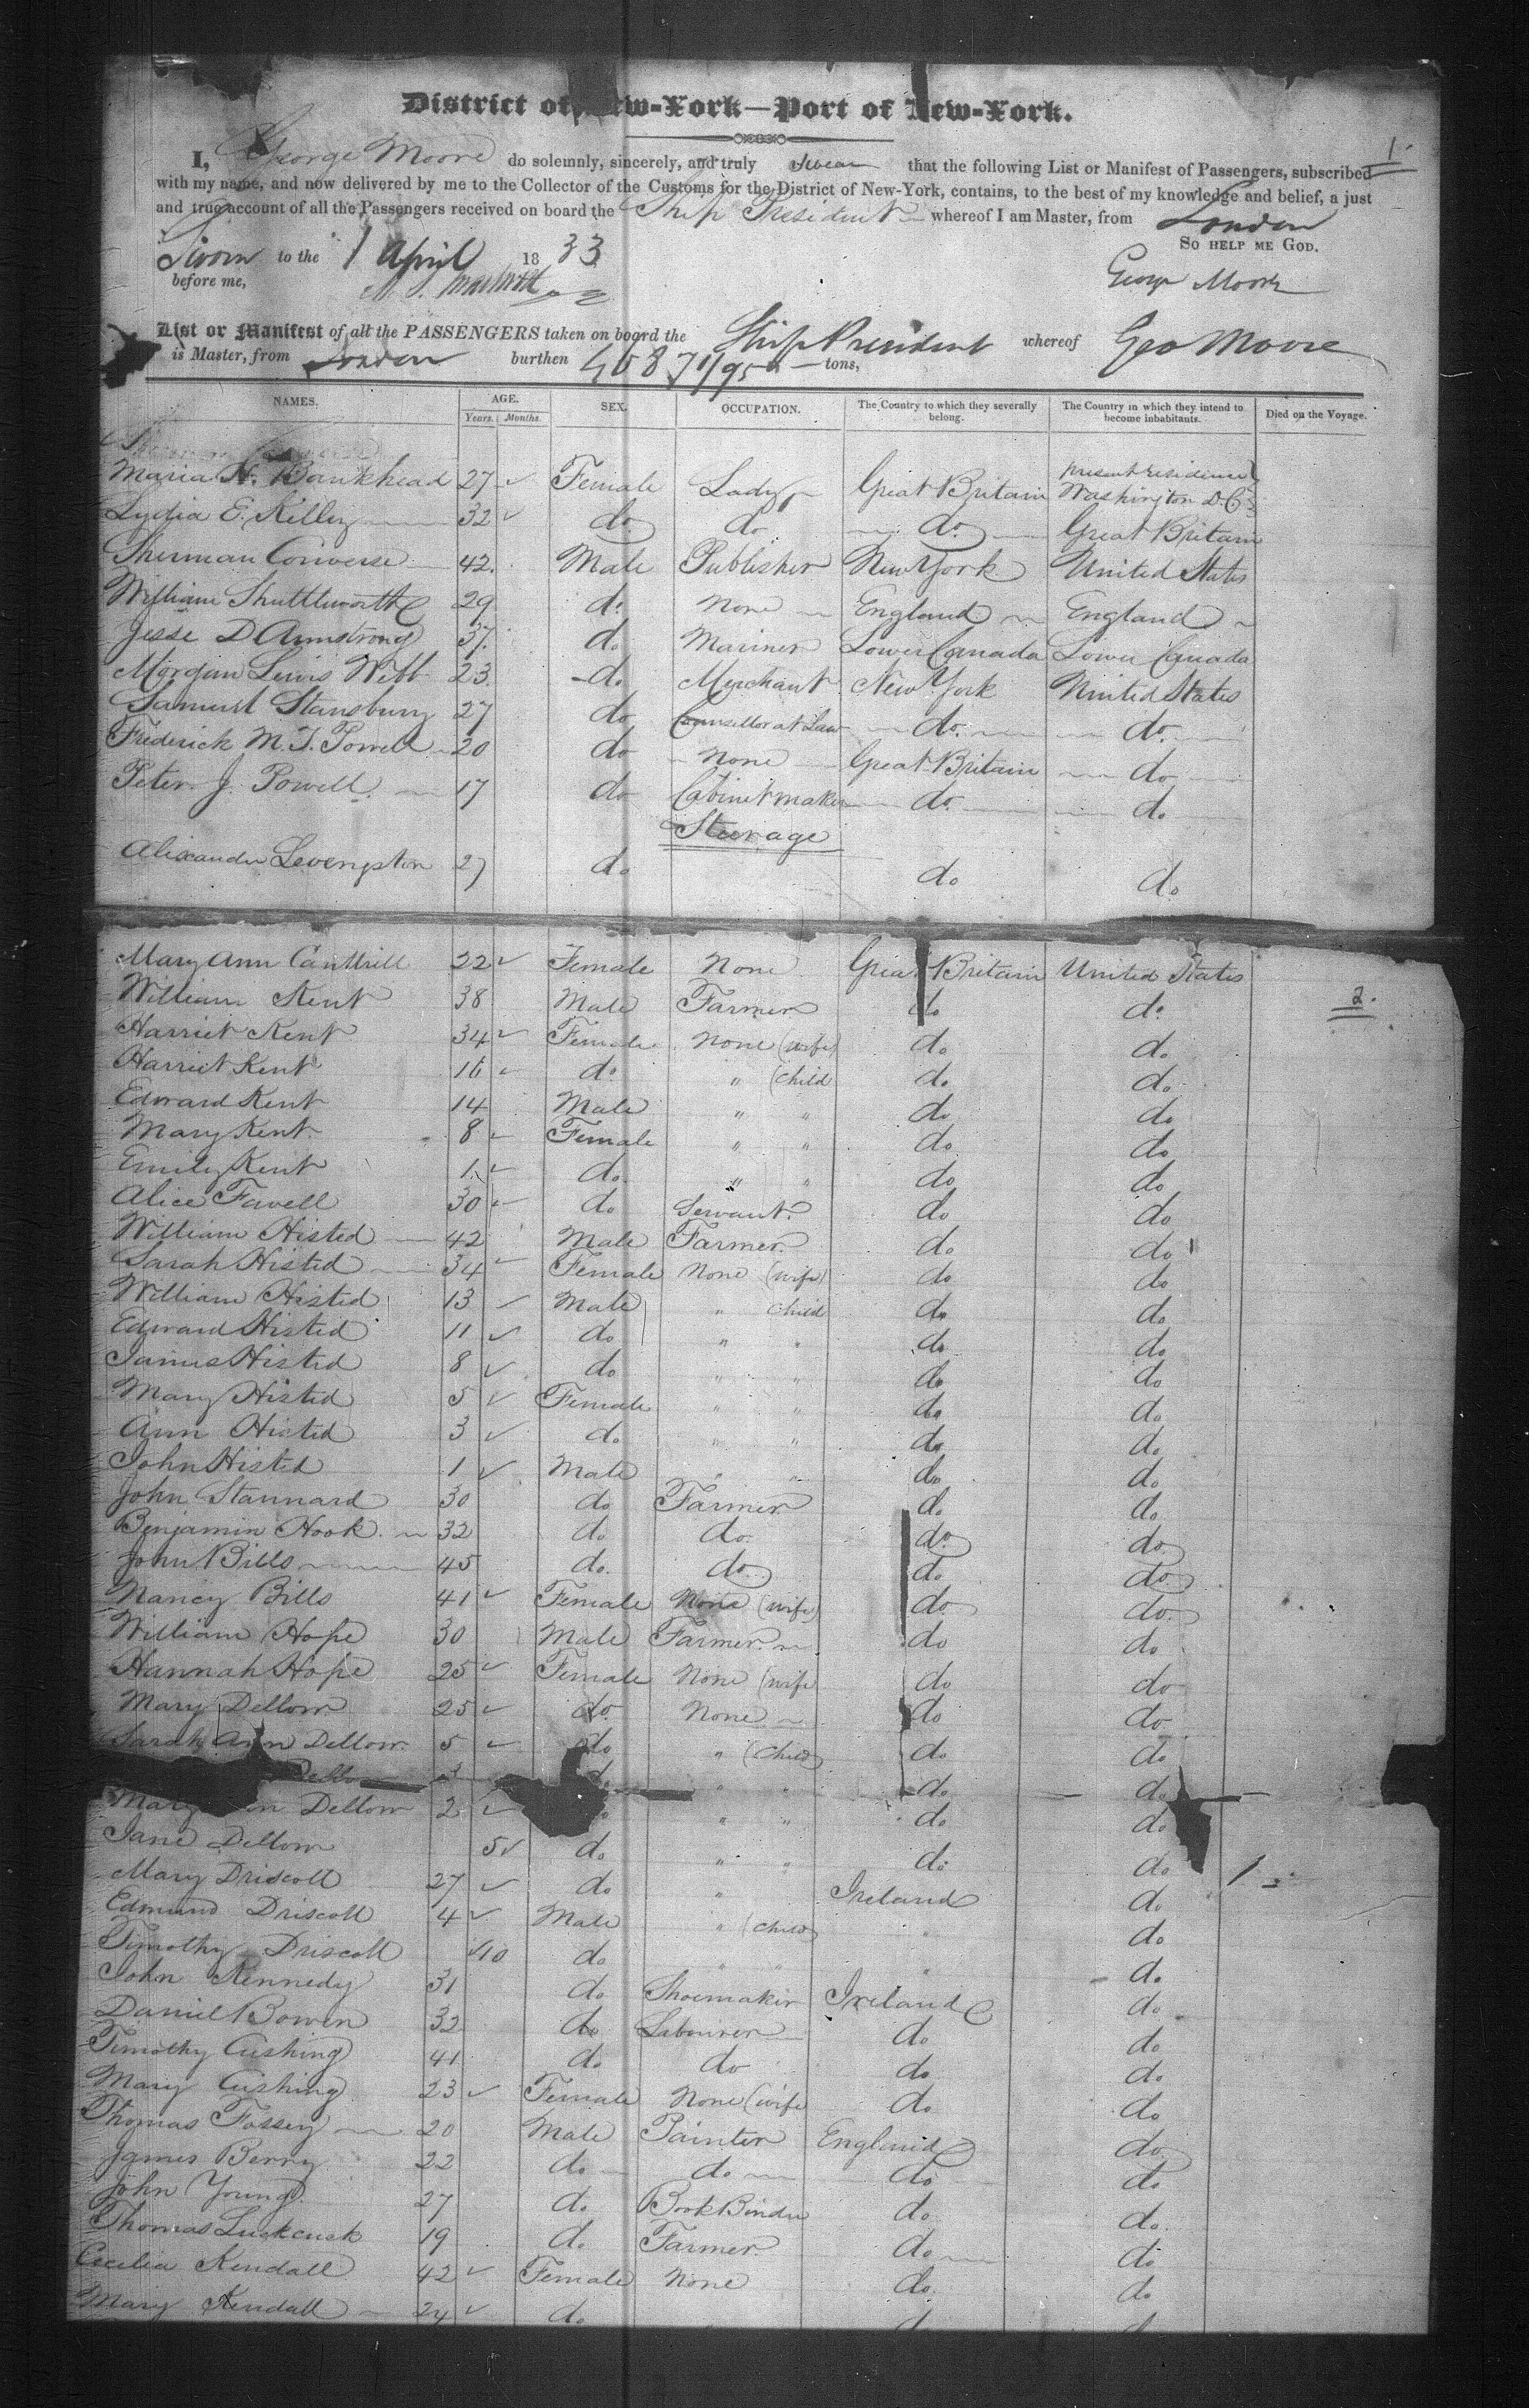 District of New-York—Port of New-York.
1.
I, George Moore do solemnly, sincerely, and truly swear that the following List or Manifest of Passengers, subscribed
with my name, and now delivered by me to the Collector of the Customs for the District of New-York, contains, to the best of my knowledge and belief, a just
and true account of all the Passengers received on board the Ship President whereof I am Master, from London
SO HELP ME GOD.
Sworn to the 1 April 1833
before me,
George Moore
List or Manifest of all the PASSENGERS taken on board the Ship President whereof Geo Moore
is Master, from London burthen 468 71/95 tons,
NAMES. AGE. SEX. OCCUPATION. The Country to which they severally belong. The Country in which they intend to become inhabitants. Died on the Voyage.
Years. Months.
Maria H. Bankhead 27 Female Lady Great Britain present residence Washington D.C.
Lydia E. Kelley 32 do do do Great Britain
Sherman Converse 42 Male Publisher New York United States
William Shuttleworth 29 do None England England
Jesse D Armstrong 37 do Mariner Lower Canada Lower Canada
Morgan Lewis Webb 23 do Merchant New York United States
Samuel Stansbury 27 do Counsellor at Law do do
Frederick M. T. Powell 20 do None Great Britain do
Peter J. Powell 17 do Cabinet maker do do
Steerage
Alexander Levengston 27 do do do
Mary Ann Cantrill 22 Female None Great Britain United States
2.
William Kent 38 Male Farmer do do
Harriet Kent 34 Female None (wife) do do
Harriet Kent 16 do " (child do do
Edward Kent 14 Male " " do do
Mary Kent 8 Female " " do do
Emily Kent 1 do " " do do
Alice Favell 30 do Servant do do
William Histed 42 Male Farmer do do
Sarah Histed 34 Female None (wife) do do
William Histed 13 Male " child do do
Edward Histed 11 do " " do do
James Histed 8 do " " do do
Mary Histed 5 Female " " do do
Ann Histed 3 do " " do do
John Histed 1 Male " " do do
John Stannard 30 do Farmer do do
Benjamin Hook 32 do do do do
John Bills 45 do do do do
Nancy Bills 41 Female None (wife) do do
William Hope 30 Male Farmer do do
Hannah Hope 25 Female None (wife do do
Mary Dellow 25 do None do do
Sarah Ann Dellow 5 do " (child) do do
Dellow 3 do " " do do
Mary Dellow 2 " " do do
Jane Dellow 5 do " " do do
Mary Driscoll 27 do " Ireland do
Edmund Driscoll 4 Male " (child) " do
Timothy Driscoll 10 do " " " do
John Kennedy 31 do Shoemaker Ireland do
Daniel Bowen 32 do Labourer do do
Timothy Cushing 41 do do do do
Mary Cushing 23 Female None (wife do do
Thomas Fossey 20 Male Painter England do
James Berry 22 do do do do
John Young 27 do Book Binder do do
Thomas Luckcuck 19 do Farmer do do
Cecilia Kendall 42 Female None do do
Mary Kendall 24 do